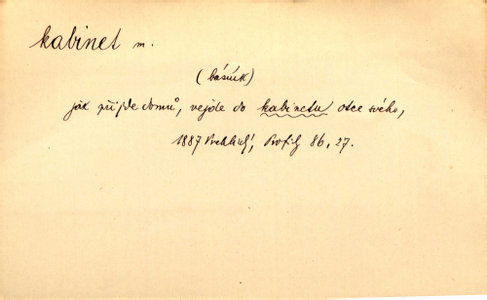 kabinet m.
(básník)
jak přijde domů, vejde do kabinetu otce svého,
1887 Vrchlický, Profily 86, 27.